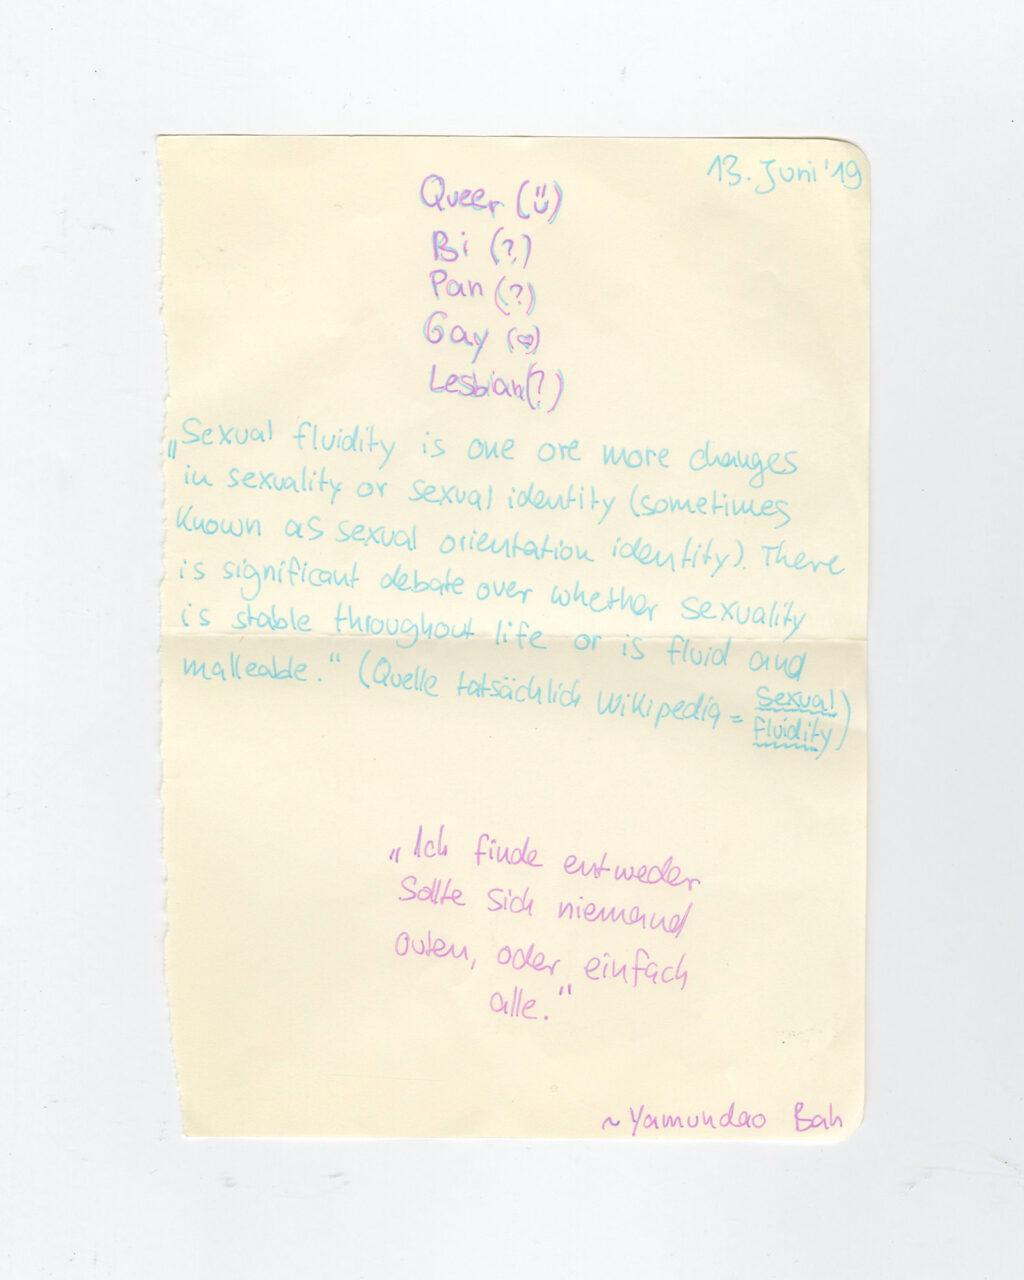 13. Juni '19
Queer (ü)
Bi (?)
Pan (?)
Gay (♡)
Lesbian (?)
„Sexual fluidity is one ore more changes
in sexuality or sexual identity (sometimes
known as sexual orientation identity). There
is significant debate over whether sexuality
is stable throughout life or is fluid and
malleable." (Quelle tatsächlich Wikipedia = Sexual
fluidity)
„Ich finde entweder
sollte sich niemand
outen, oder einfach
alle."
~Yamundao Bah